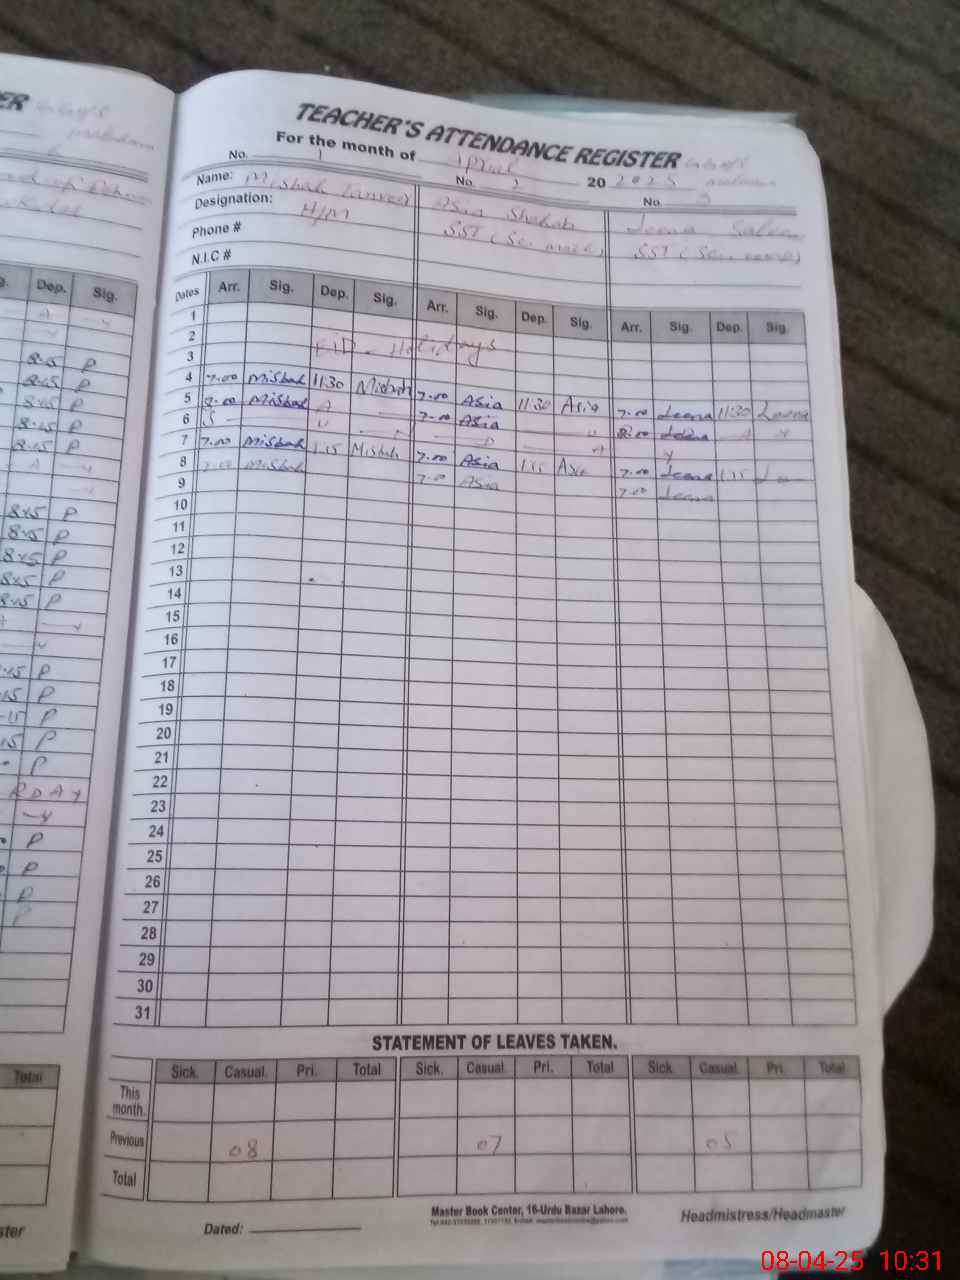 TEACHER'S ATTENDANCE REGISTER
For the month of April 20 2025
No. 1 No. 2 No. 3
Name: Misbah Tanveer Asia Shehab Leena Saleem
Designation: H/M SST (Sc. SST (Sci.
Phone #
N.I.C #
Dates Arr. Sig. Dep. Sig. Arr. Sig. Dep. Sig. Arr. Sig. Dep. Sig.
1
2
3 EID - Holidays
4 7.00 Misbah 11:30 Misbah 7.00 Asia 11:30 Asia 7.00 Leena 11:30 Leena
5 8.00 Misbah A 7.00 Asia 8.00 Leena A Y
6 S U N D A Y
7 7.00 Misbah 1:15 Misbah 7.00 Asia 1:15 Asia 7.00 Leena 1:15
8 7.00 Misbah 7.00 Asia 7.00 Leena
9
10
11
12
13
14
15
16
17
18
19
20
21
22
23
24
25
26
27
28
29
30
31
STATEMENT OF LEAVES TAKEN.
Sick. Casual. Pri. Total Sick. Casual. Pri. Total Sick. Casual. Pri. Total
This month.
Previous 08 07 05
Total
Master Book Center, 16-Urdu Bazar Lahore.
Dated: Headmistress/Headmaster
ER
Dep. Sig.
A Y
Y
8:15 P
8:15 P
8:15 P
8:15 P
8:15 P
A Y
8:15 P
8:15 P
8:15 P
8:15 P
8:15 P
Y
Y
P
P
P
P
P
R D A Y
Y
P
P
P
P
Total
ster
08-04-25 10:31